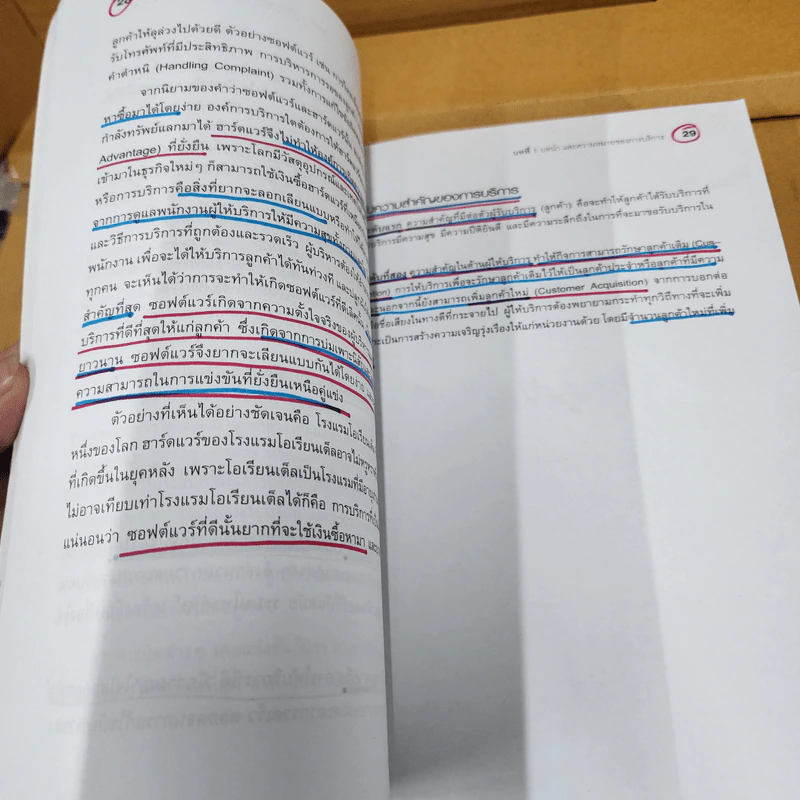 28
ลูกค้าให้ลุล่วงไปด้วยดี ตัวอย่างซอฟต์แวร์ เช่น
รับโทรศัพท์ที่มีประสิทธิภาพ การบริหารการรอคอย
คำตำหนิ (Handling Complaint) รวมทั้งการแก้ไข
จากนิยามของคำว่าซอฟต์แวร์และฮาร์ดแวร์
หาซื้อมาได้โดยง่าย องค์การบริการใดต้องการให้
กำลังทรัพย์แลกมาได้ ฮาร์ดแวร์จึงไม่ทำให้
Advantage) ที่ยั่งยืน เพราะโลกมีวัสดุอุปกรณ์และ
เข้ามาในธุรกิจใหม่ๆ ก็สามารถใช้เงินซื้อฮาร์ดแวร์ที่
หรือการบริการคือสิ่งที่ยากจะลอกเลียนแบบหรือทำให้
จากการดูแลพนักงานผู้ให้บริการให้มีความสุข
และวิธีการบริการที่ถูกต้องและรวดเร็ว ผู้บริหารต้อง
พนักงาน เพื่อจะได้ให้บริการลูกค้าได้ทันท่วงที และ
ทุกคน จะเห็นได้ว่าการจะทำให้เกิดซอฟต์แวร์ที่ดี
สำคัญที่สุด ซอฟต์แวร์เกิดจากความตั้งใจจริงของ
บริการที่ดีที่สุดให้แก่ลูกค้า ซึ่งเกิดจากการบ่มเพาะ
ยาวนาน ซอฟต์แวร์จึงยากจะเลียนแบบกันได้โดยง่าย
ความสามารถในการแข่งขันที่ยั่งยืนเหนือคู่แข่ง
ตัวอย่างที่เห็นได้อย่างชัดเจนคือ โรงแรมโอเรียนเต็ล
หนึ่งของโลก ฮาร์ดแวร์ของโรงแรมโอเรียนเต็ลอาจไม่หรูหรา
ที่เกิดขึ้นในยุคหลัง เพราะโอเรียนเต็ลเป็นโรงแรมที่มีอายุ
ไม่อาจเทียบเท่าโรงแรมโอเรียนเต็ลได้ก็คือ การบริการที่
แน่นอนว่า ซอฟต์แวร์ที่ดีนั้นยากที่จะใช้เงินซื้อหามา และ
บทที่ 1 บทนำ และความหมายของการบริการ 29
ความสำคัญของการบริการ
ความสำคัญที่มีต่อตัวผู้รับบริการ (ลูกค้า) คือจะทำให้ลูกค้าได้รับบริการที่
บริการมีความสุข มีความปิติยินดี และมีความระลึกถึงในการที่จะมาขอรับบริการใน
ที่สอง ความสำคัญในด้านผู้ให้บริการ ทำให้กิจการสามารถรักษาลูกค้าเดิม (Cus-
การให้บริการเพื่อจะรักษาลูกค้าเดิมไว้ให้เป็นลูกค้าประจำหรือลูกค้าที่มีความ
นอกจากนี้ยังสามารถเพิ่มลูกค้าใหม่ (Customer Acquisition) จากการบอกต่อ
ชื่อเสียงในทางดีที่กระจายไป ผู้ให้บริการต้องพยายามกระทำทุกวิถีทางที่จะเพิ่ม
จะเป็นการสร้างความเจริญรุ่งเรืองให้แก่หน่วยงานด้วย โดยมีจำนวนลูกค้าใหม่ที่เพิ่ม